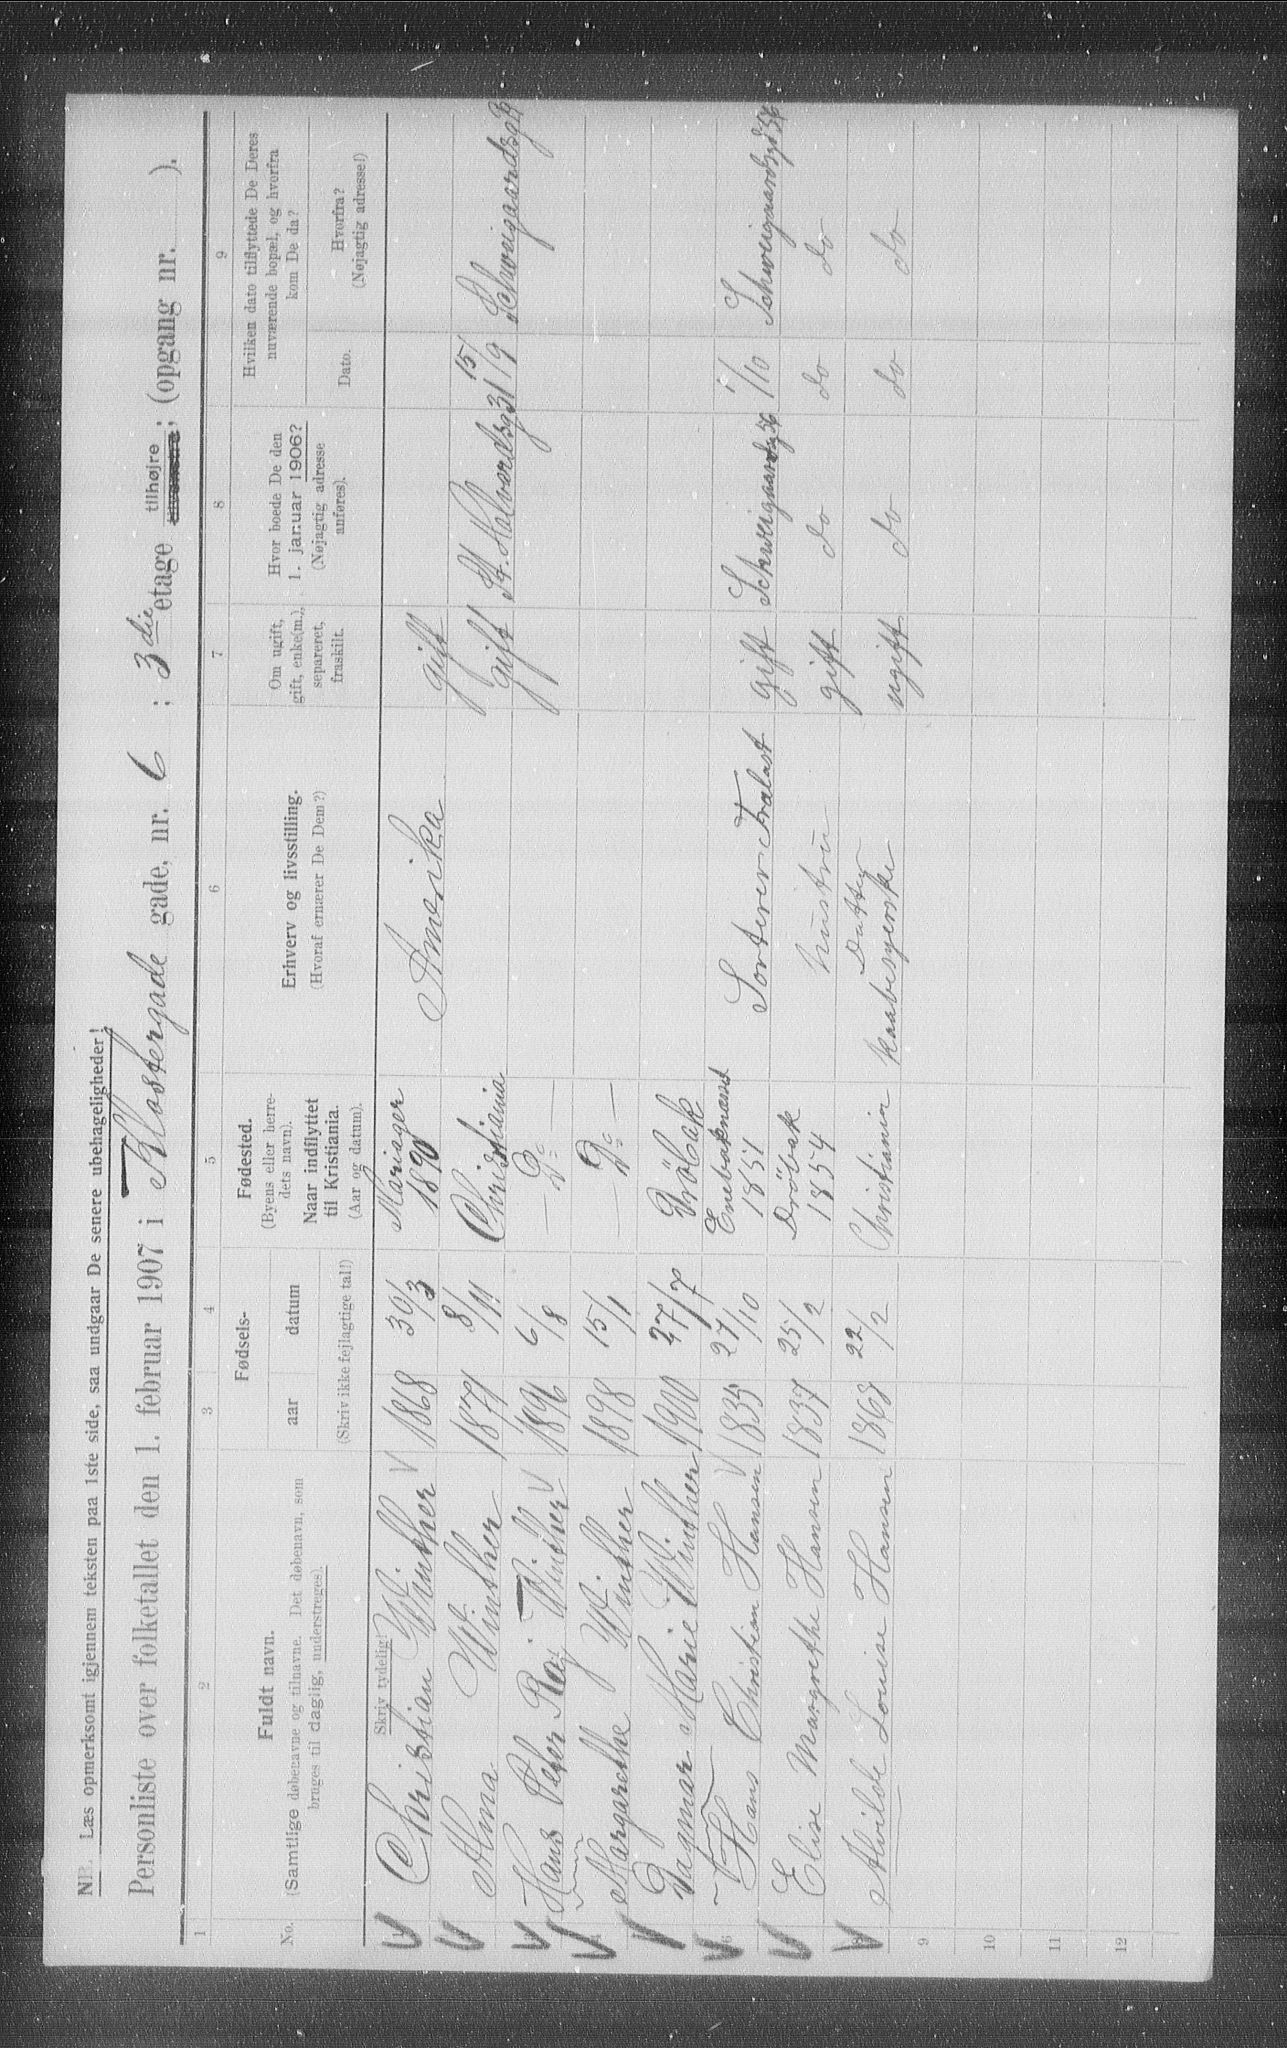 NB. Læs opmerksomt igjennem teksten paa 1ste side, saa undgaar De senere ubehageligheder!
Personliste over folketallet den 1. februar 1907 i Klostergade gade, nr. 6 ; 3die etage tilhøjre ; (opgang nr. ).
1 2 3 4 5 6 7 8 9
No. Fuldt navn. (Samtlige døbenavne og tilnavne. Det døbenavn, som bruges til daglig, understreges). Skriv tydelig!
Fødsels- aar datum (Skriv ikke fejlagtige tal!)
Fødested. (Byens eller herredets navn). Naar indflyttet til Kristiania. (Aar og datum).
Erhverv og livsstilling. (Hvoraf ernærer De Dem?)
Om ugift, gift, enke(m.), separeret, fraskilt.
Hvor boede De den 1. januar 1906? (Nøjagtig adresse anføres).
Hvilken dato tilflyttede De Deres nuværende bopæl, og hvorfra kom De da?
Dato. Hvorfra? (Nøjagtig adresse!)
Christian Winther 1868 30/3 Mariager 1890 Amerika gift
Alma Winther 1871 8/11 Christiania gift St. Halvardsg 31 15/9 Schweigaardsg
Hans Peter Winther 1896 6/8 — Do —
Margarethe Winther 1898 15/1 — Do —
Dagmar Marie Winther 1900 27/7 Dröbak
6 Hans Christian Hansen 1835 27/10 Enebaknæsset 1851 Sorterer Trælast gift Schweigaardsg 56 1/10 Schweigaardsgd 56
Elise Margrethe Hansen 1837 25/2 Dröbak 1854 hustru gift do do do
8 Alvilde Louise Hansen 1868 22/2 Christiania Datter Kaabesyerske ugift do do do
9
10
11
12